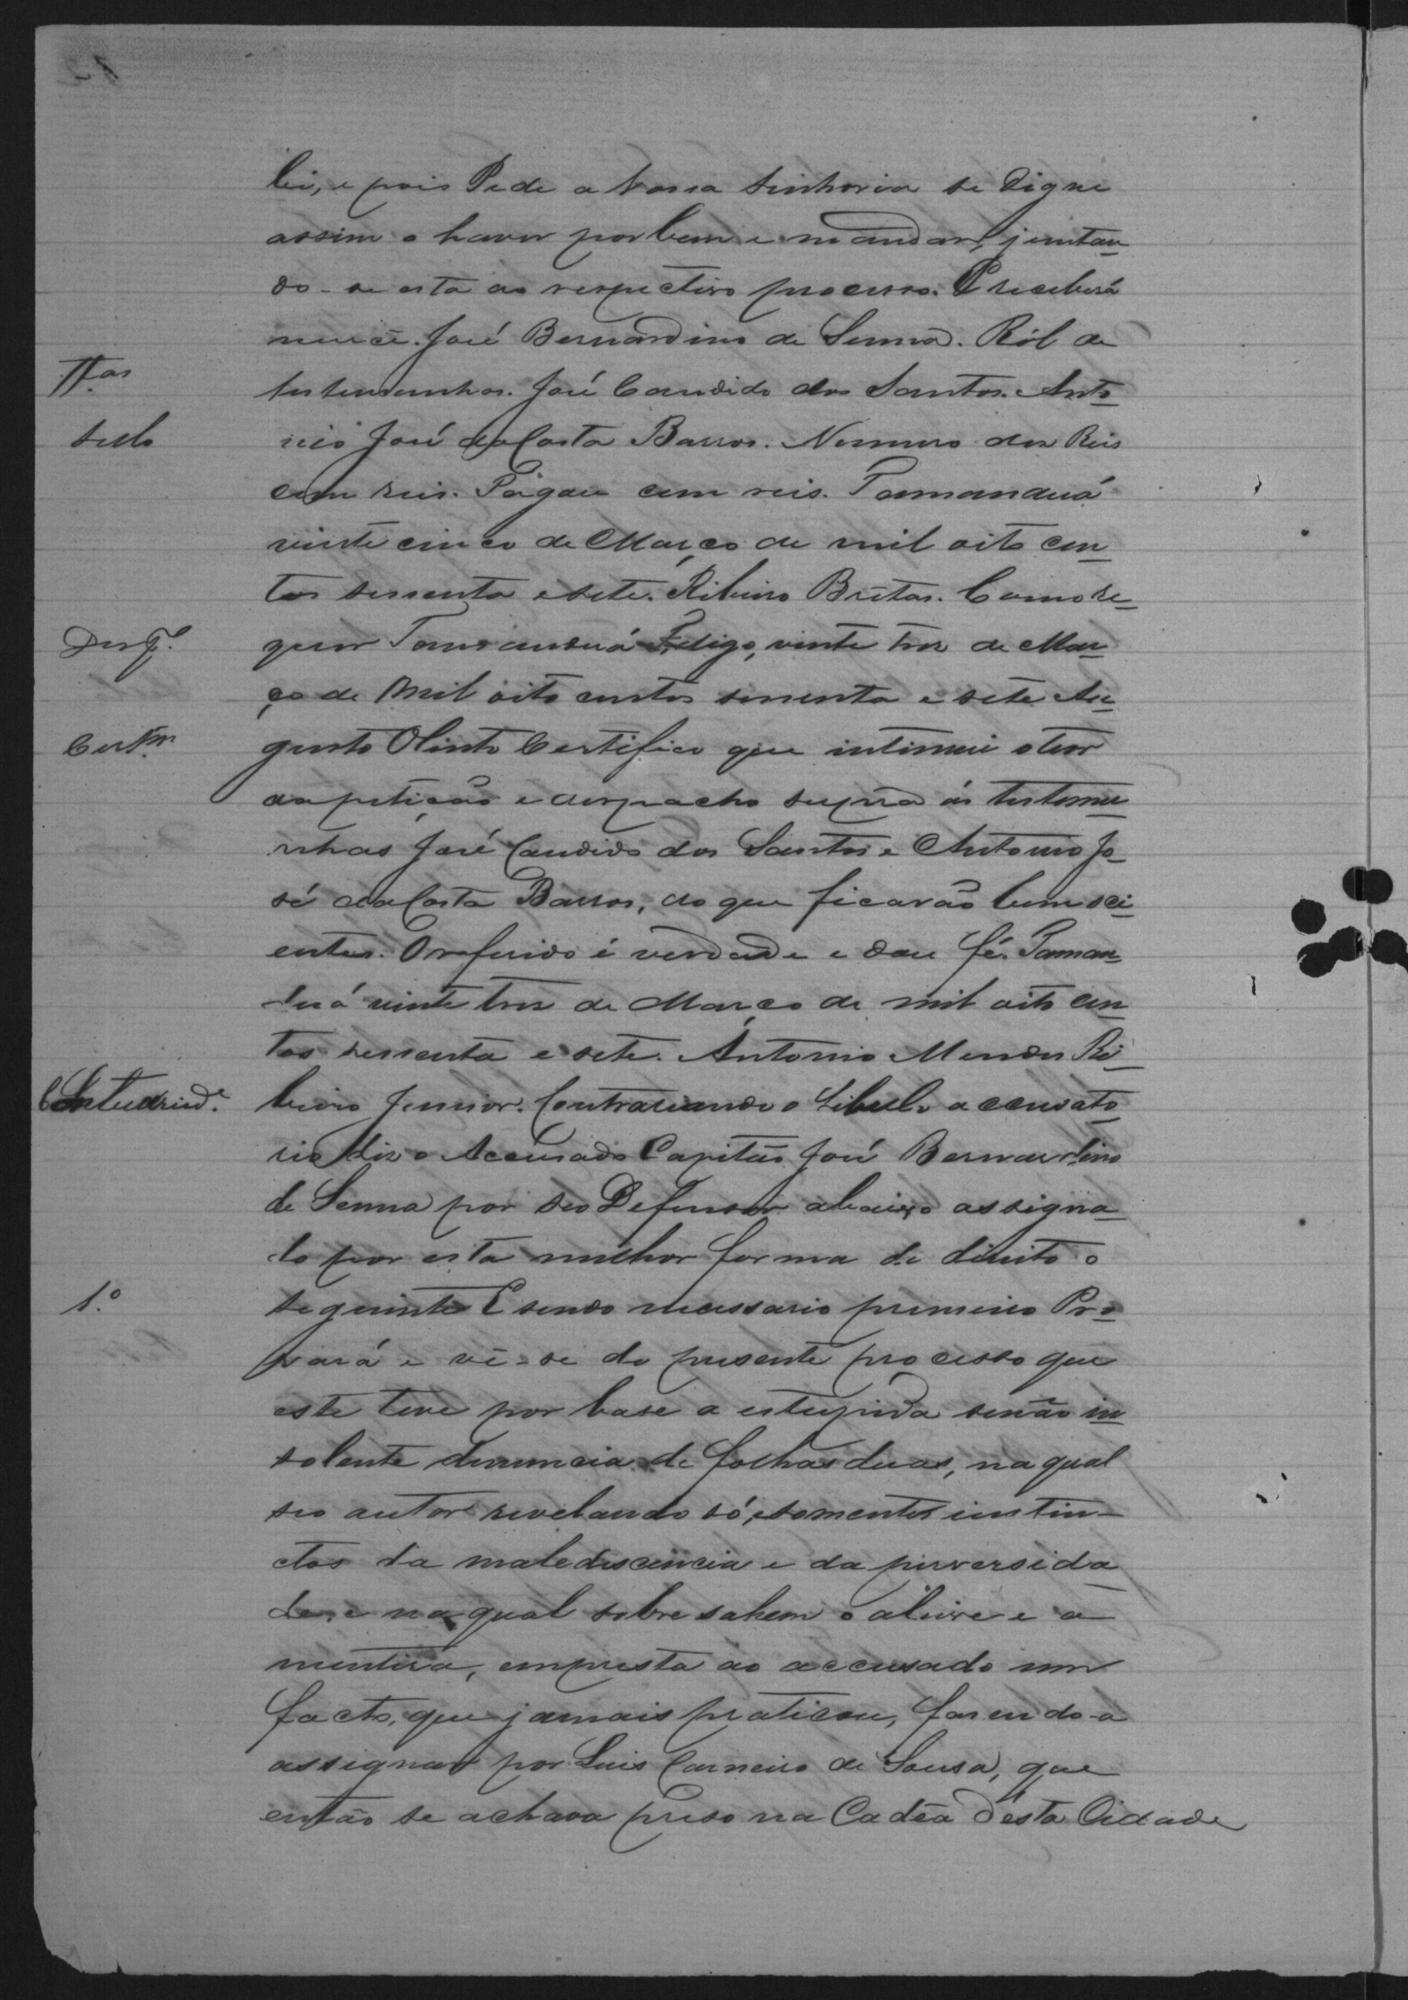 lei, e pois Pede a Vossa Senhoria se digne
assim o haver por bem e mandar, juntan
do-se esta ao respectivo processo. E receberá
mercê. José Bernardino de Senna. Ról de
TT.as testemunhas. José Candido dos Santos. Anto
Sello nio José da Costa Barros. Numero dos Reis
cem reis. Pagou cem reis. Tamanduá
vinte cinco de Março de mil oito cen
tos sessenta e sete. Ribeiro Brétas. Como re
Desp.º quer Tamanduá digo, vinte tres de Mar
ço de Mil oito centos sessenta e sete Au
Certm. gusto Olinto Certifico que intimei o teor
da petição e despacho supra ás testemu
nhas José Candido dos Santos e Antonio Jo
sé da Costa Barros, do que ficarão bem sci
entes. O referido é verdade e dou fé. Taman
duá vinte tres de Março de mil oito cen
tos sessenta e sete. Antonio Mendes Ri
beiro Junior. Contrariando o Libello accusato
rio diz o Accusado Capitão José Bernardino
de Senna por seo Defensor abaixo assigna
do por esta milhor forma de direito o
1.º seguinte E sendo necessario primeiro Pro
vará e vê-se do presente processo que
este teve por base a estupida senão in
solente denuncia de folhas duas, na qual
seo autor revelando só, e somente instin
ctos da maledicencia e da perversida
de, e na qual sobresahem o aleive e a
mentira, empresta ao accusado um
facto, que jamais praticou, fazendo-a
assignar por Luis Carneiro de Sousa, que
então se achava preso na Cadêa d'esta Cidade